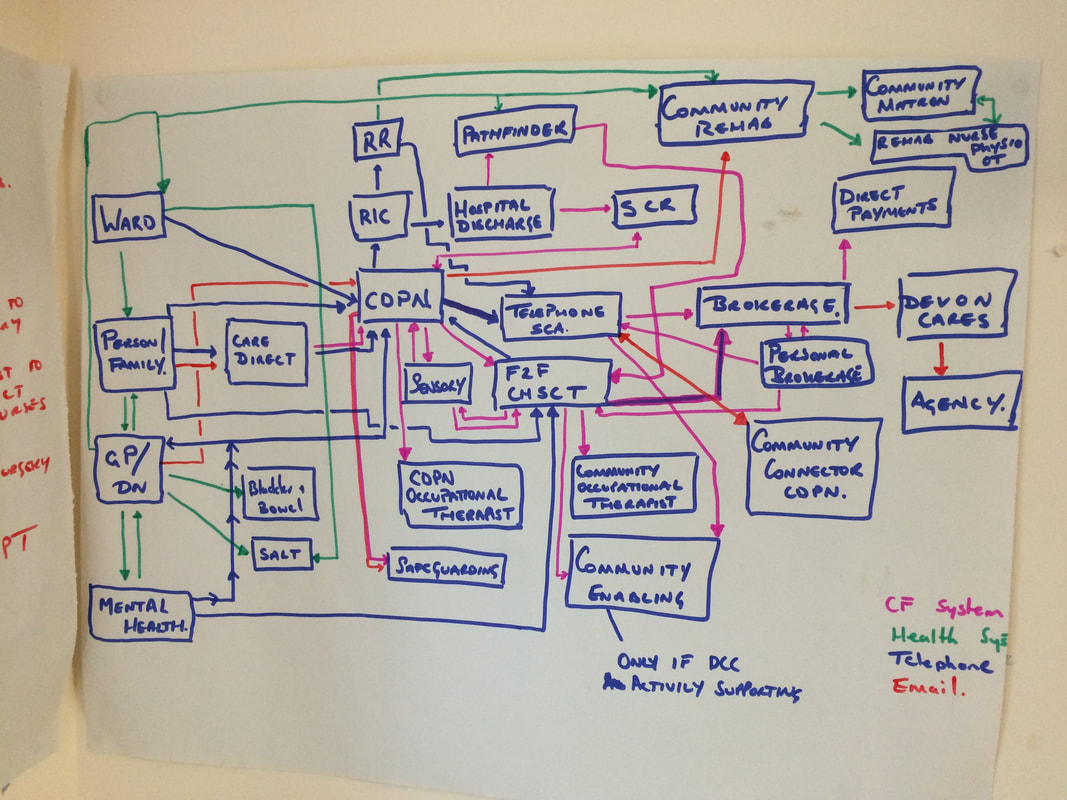 COMMUNITY
MATRON
COMMUNITY
REHAB
RR
PATHFINDER
REHAB NURSE
PHYSIO
OT
WARD
RIC
HOSPITAL
DISCHARGE
SCR
DIRECT
PAYMENTS
CDPN
TELEPHONE
SCA.
BROKERAGE.
DEVON
CARES
PERSON/
FAMILY.
CARE
DIRECT
SENSORY
F2F
CHSCT
PERSONAL
BROKERAGE
AGENCY.
GP/
DN
Bladder +
Bowel
CDPN
OCCUPATIONAL
THERAPIST
COMMUNITY
OCCUPATIONAL
THERAPIST
COMMUNITY
CONNECTOR
CDPN.
SALT
SAFEGUARDING
COMMUNITY
ENABLING
MENTAL
HEALTH.
ONLY IF DCC
ACTIVILY SUPPORTING
CF System
Health Sys
Telephone
Email.
TO
ST TO
PT